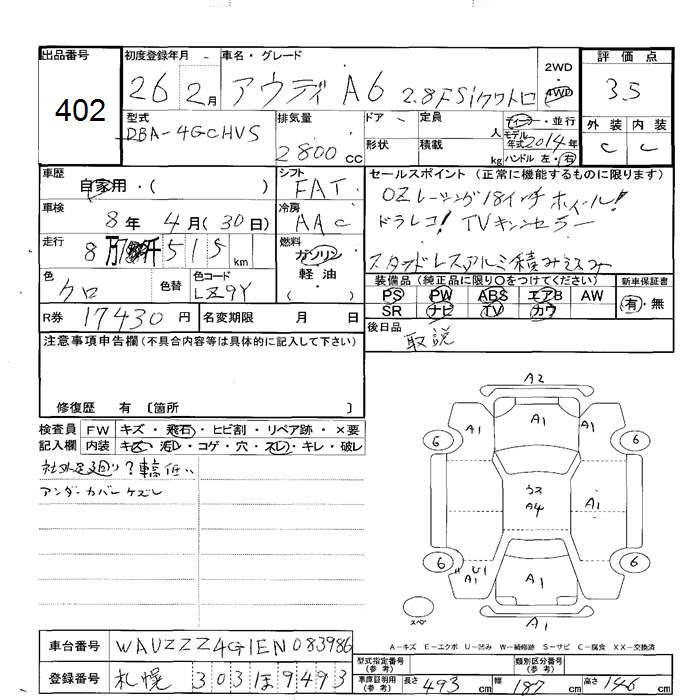 出品番号
402
初度登録年月
26 2月
車名・グレード
アウディ A6 2.8FSiクワトロ
2WD
4WD
評価点
3.5
外装 内装
C C
型式
DBA-4GCHVS
排気量
2800cc
ドア
定員 人
形状
積載 kg
ディーラー・並行
モデル年式2014年
ハンドル 左・右
車歴
自家用・( )
シフト
FAT
セールスポイント (正常に機能するものに限ります)
OZレーシング18インチホイール!
ドラレコ! TVキャンセラー
スタッドレスアルミ積み込み
車検
8年 4月(30日)
冷房
AAC
走行
8万 515km
燃料
ガソリン
軽油
( )
色
クロ
色替
色コード
LZ9Y
装備品 (純正品に限り○をつけてください)
PS PW ABS エアB AW
SR ナビ TV カワ
新車保証書
有・無
R券 17430円
名変期限 月 日
後日品
取説
注意事項申告欄 (不具合内容等は具体的に記入して下さい)
修復歴 有 〔箇所 〕
検査員記入欄
FW キズ・飛石・ヒビ割・リペア跡・×要
内装 キズ・汚れ・コゲ・穴・スレ・キレ・破レ
社外足廻り?車高低い
アンダーカバーケズレ
A2
A1
6 A1 A1 6
ウス
A4
A1
6 U1
A1 A1 A1 6
スペア
A1
A-キズ E-エクボ U-凹み W-補修跡 S-サビ C-腐食 XX-交換済
車台番号 WAUZZZ4G1EN083986
登録番号 札幌 303 ほ 9493
型式指定番号(参考)
類別区分番号(参考)
車庫証明用(参考) 長さ 493cm 幅 187cm 高さ 146cm